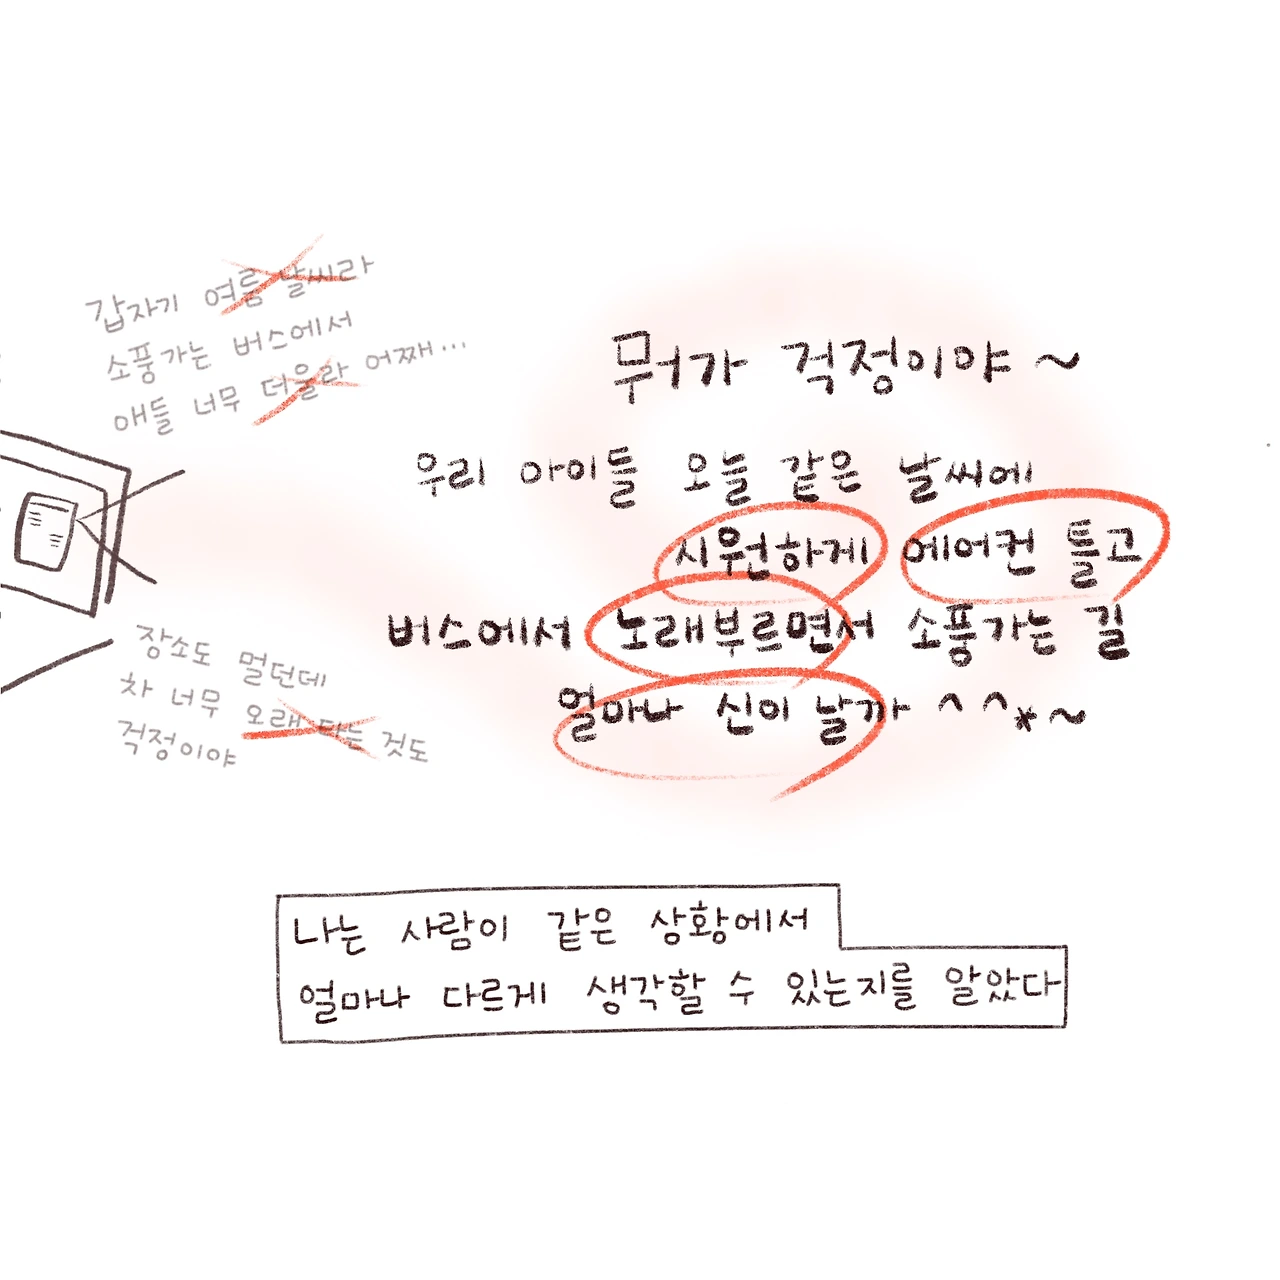 갑자기 여름 날씨라
소풍가는 버스에서
애들 너무 더울라 어쩌...
뭐가 걱정이야 ~
우리 아이들 오늘 같은 날씨에
시원하게 에어컨 틀고
버스에서 노래부르면서 소풍가는 길
얼마나 신이 날까 ^^*~
장소도 멀던데
차 너무 오래 타는 것도
걱정이야
나는 사람이 같은 상황에서
얼마나 다르게 생각할 수 있는지를 알았다